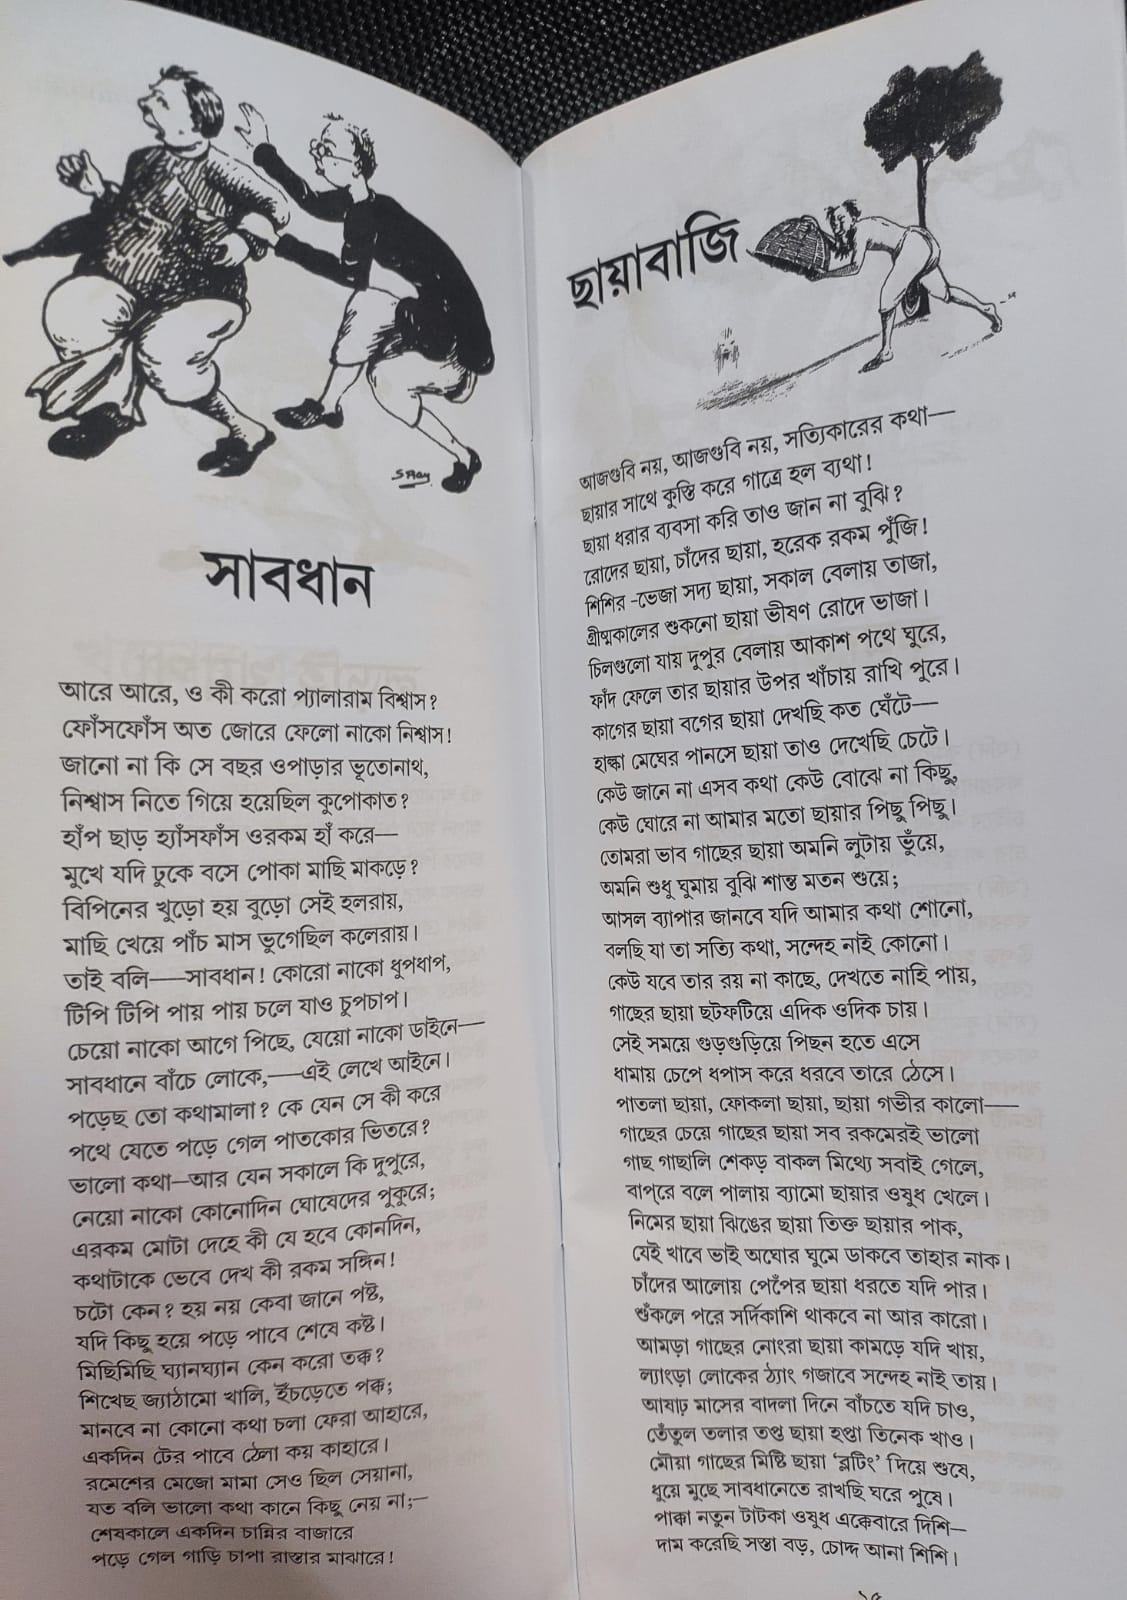 S Ray
সাবধান
আরে আরে, ও কী করো প্যালারাম বিশ্বাস?
ফোঁসফোঁস অত জোরে ফেলো নাকো নিশ্বাস!
জানো না কি সে বছর ওপাড়ার ভূতোনাথ,
নিশ্বাস নিতে গিয়ে হয়েছিল কুপোকাত?
হাঁপ ছাড় হ্যাঁসফাঁস ওরকম হাঁ করে—
মুখে যদি ঢুকে বসে পোকা মাছি মাকড়ে?
বিপিনের খুড়ো হয় বুড়ো সেই হলরায়,
মাছি খেয়ে পাঁচ মাস ভুগেছিল কলেরায়।
তাই বলি—সাবধান! কোরো নাকো ধুপধাপ,
টিপি টিপি পায় পায় চলে যাও চুপচাপ।
চেয়ো নাকো আগে পিছে, যেয়ো নাকো ডাইনে—
সাবধানে বাঁচে লোকে,—এই লেখে আইনে।
পড়েছ তো কথামালা? কে যেন সে কী করে
পথে যেতে পড়ে গেল পাতকোর ভিতরে?
ভালো কথা—আর যেন সকালে কি দুপুরে,
নেয়ো নাকো কোনোদিন ঘোষেদের পুকুরে;
এরকম মোটা দেহে কী যে হবে কোনদিন,
কথাটাকে ভেবে দেখ কী রকম সঙ্গিন!
চটো কেন? হয় নয় কেবা জানে পষ্ট,
যদি কিছু হয়ে পড়ে পাবে শেষে কষ্ট।
মিছিমিছি ঘ্যানঘ্যান কেন করো তক্ক?
শিখেছ জ্যাঠামো খালি, ইঁচড়েতে পক্ক;
মানবে না কোনো কথা চলা ফেরা আহারে,
একদিন টের পাবে ঠেলা কয় কাহারে।
রমেশের মেজো মামা সেও ছিল সেয়ানা,
যত বলি ভালো কথা কানে কিছু নেয় না;—
শেষকালে একদিন চান্নির বাজারে
পড়ে গেল গাড়ি চাপা রাস্তার মাঝারে!
ছায়াবাজি
আজগুবি নয়, আজগুবি নয়, সত্যিকারের কথা—
ছায়ার সাথে কুস্তি করে গাত্রে হল ব্যথা!
ছায়া ধরার ব্যবসা করি তাও জান না বুঝি?
রোদের ছায়া, চাঁদের ছায়া, হরেক রকম পুঁজি!
শিশির -ভেজা সদ্য ছায়া, সকাল বেলায় তাজা,
গ্রীষ্মকালের শুকনো ছায়া ভীষণ রোদে ভাজা।
চিলগুলো যায় দুপুর বেলায় আকাশ পথে ঘুরে,
ফাঁদ ফেলে তার ছায়ার উপর খাঁচায় রাখি পুরে।
কাগের ছায়া বগের ছায়া দেখছি কত ঘেঁটে—
হাল্কা মেঘের পানসে ছায়া তাও দেখেছি চেটে।
কেউ জানে না এসব কথা কেউ বোঝে না কিছু,
কেউ ঘোরে না আমার মতো ছায়ার পিছু পিছু।
তোমরা ভাব গাছের ছায়া অমনি লুটায় ভুঁয়ে,
অমনি শুধু ঘুমায় বুঝি শান্ত মতন শুয়ে;
আসল ব্যাপার জানবে যদি আমার কথা শোনো,
বলছি যা তা সত্যি কথা, সন্দেহ নাই কোনো।
কেউ যবে তার রয় না কাছে, দেখতে নাহি পায়,
গাছের ছায়া ছটফটিয়ে এদিক ওদিক চায়।
সেই সময়ে গুড়গুড়িয়ে পিছন হতে এসে
ধামায় চেপে ধপাস করে ধরবে তারে ঠেসে।
পাতলা ছায়া, ফোকলা ছায়া, ছায়া গভীর কালো—
গাছের চেয়ে গাছের ছায়া সব রকমেরই ভালো
গাছ গাছালি শেকড় বাকল মিথ্যে সবাই গেলে,
বাপ্‌রে বলে পালায় ব্যামো ছায়ার ওষুধ খেলে।
নিমের ছায়া ঝিঙের ছায়া তিক্ত ছায়ার পাক,
যেই খাবে ভাই অঘোর ঘুমে ডাকবে তাহার নাক।
চাঁদের আলোয় পেঁপের ছায়া ধরতে যদি পার।
শুঁকলে পরে সর্দিকাশি থাকবে না আর কারো।
আমড়া গাছের নোংরা ছায়া কামড়ে যদি খায়,
ল্যাংড়া লোকের ঠ্যাং গজাবে সন্দেহ নাই তায়।
আষাঢ় মাসের বাদলা দিনে বাঁচতে যদি চাও,
তেঁতুল তলার তপ্ত ছায়া হপ্তা তিনেক খাও।
মৌয়া গাছের মিষ্টি ছায়া ‘ব্লটিং’ দিয়ে শুষে,
ধুয়ে মুছে সাবধানেতে রাখছি ঘরে পুষে।
পাক্কা নতুন টাটকা ওষুধ এক্কেবারে দিশি—
দাম করেছি সস্তা বড়, চোদ্দ আনা শিশি।